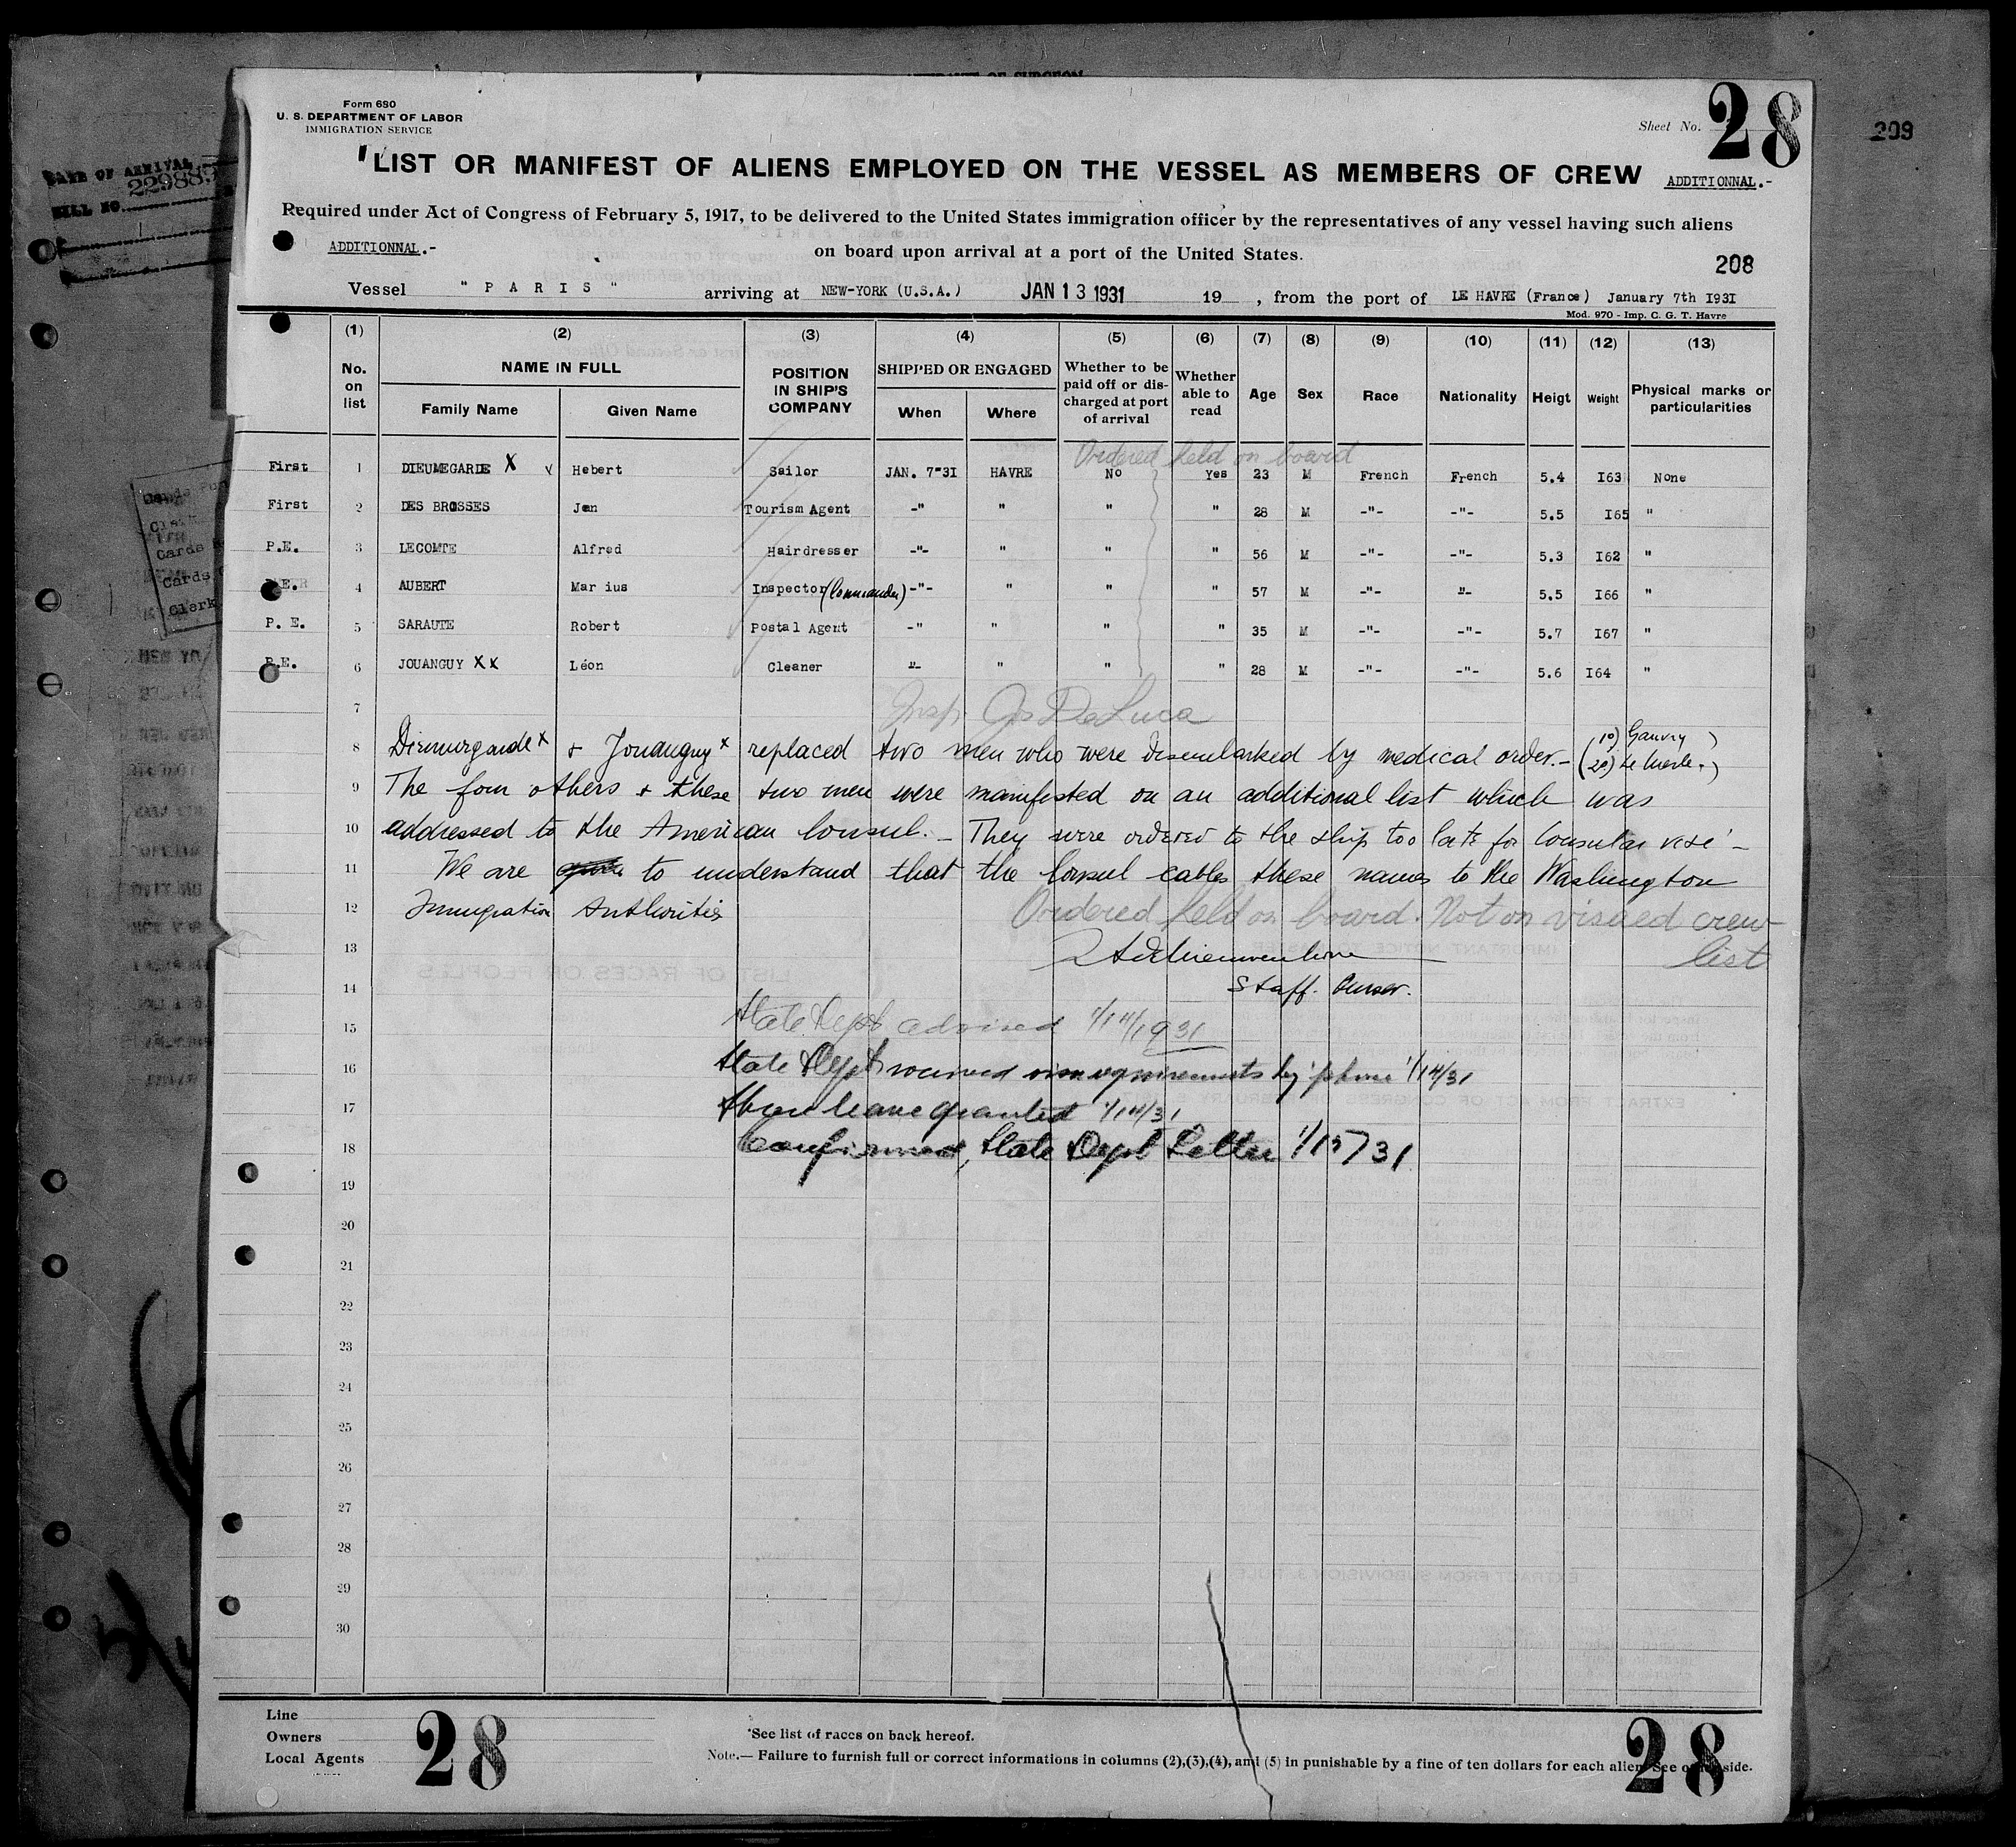 Form 680
U. S. DEPARTMENT OF LABOR
IMMIGRATION SERVICE
Sheet No. 28
209
LIST OR MANIFEST OF ALIENS EMPLOYED ON THE VESSEL AS MEMBERS OF CREW ADDITIONNAL.-
Required under Act of Congress of February 5, 1917, to be delivered to the United States immigration officer by the representatives of any vessel having such aliens
ADDITIONNAL.- on board upon arrival at a port of the United States.
208
Vessel "PARIS" arriving at NEW-YORK (U.S.A.) JAN 13 1931 19 , from the port of LE HAVRE (France) January 7th I93I
Mod. 970 - Imp. C. G. T. Havre
(1) (2) (3) (4) (5) (6) (7) (8) (9) (10) (11) (12) (13)
No. on list NAME IN FULL Family Name Given Name POSITION IN SHIP'S COMPANY SHIPPED OR ENGAGED When Where Whether to be paid off or discharged at port of arrival Whether able to read Age Sex Race Nationality Heigt Weight Physical marks or particularities
Ordered held on board
First 1 DIEUMEGARDE X v Hebert Sailor JAN. 7-31 HAVRE No Yes 23 M French French 5.4 I63 None
First 2 DES BROSSES Jen Tourism Agent -" " " " 28 M -"- -"- 5.5 I65 "
P.E. 3 LECOMTE Alfred Hairdresser -"- " " " 56 M -"- -"- 5.3 I62 "
P.E. 4 AUBERT Mar ius Inspector (Commander) -"- " " " 57 M -"- "- 5.5 I66 "
P. E. 5 SARAUTE Robert Postal Agent -" " " " 35 M -"- -"- 5.7 I67 "
P.E. 6 JOUANGUY XX Léon Cleaner "- " " " 28 M -"- -"- 5.6 I64 "
7 Insp. Jos DeLuca
8 Dieumegarde x & Jouanguy x replaced two men who were disembarked by medical order.- (1º) Gauvry ) (2º) Le )
9 The four others & these two men were manifested on an additional list which was
10 addressed to the American Consul. - They were ordered to the ship too late for Consular visé -
11 We are to understand that the Consul cables these names to the Washington
12 Immigration Authorities Ordered held on board. Not on visaed crew
13 list
14 Staff. Purser.
15 State Dept advised 1/14/1931
16 State Dept waived visa requirements by 'phone 1/14/31
17 Shore leave granted 1/14/31
18 Confirmed, State Dept Letter 1/15/31
19
20
21
22
23
24
25
26
27
28
29
30
Line
Owners
Local Agents
28
*See list of races on back hereof.
Note.— Failure to furnish full or correct informations in columns (2),(3),(4), and (5) in punishable by a fine of ten dollars for each alien. See side.
28